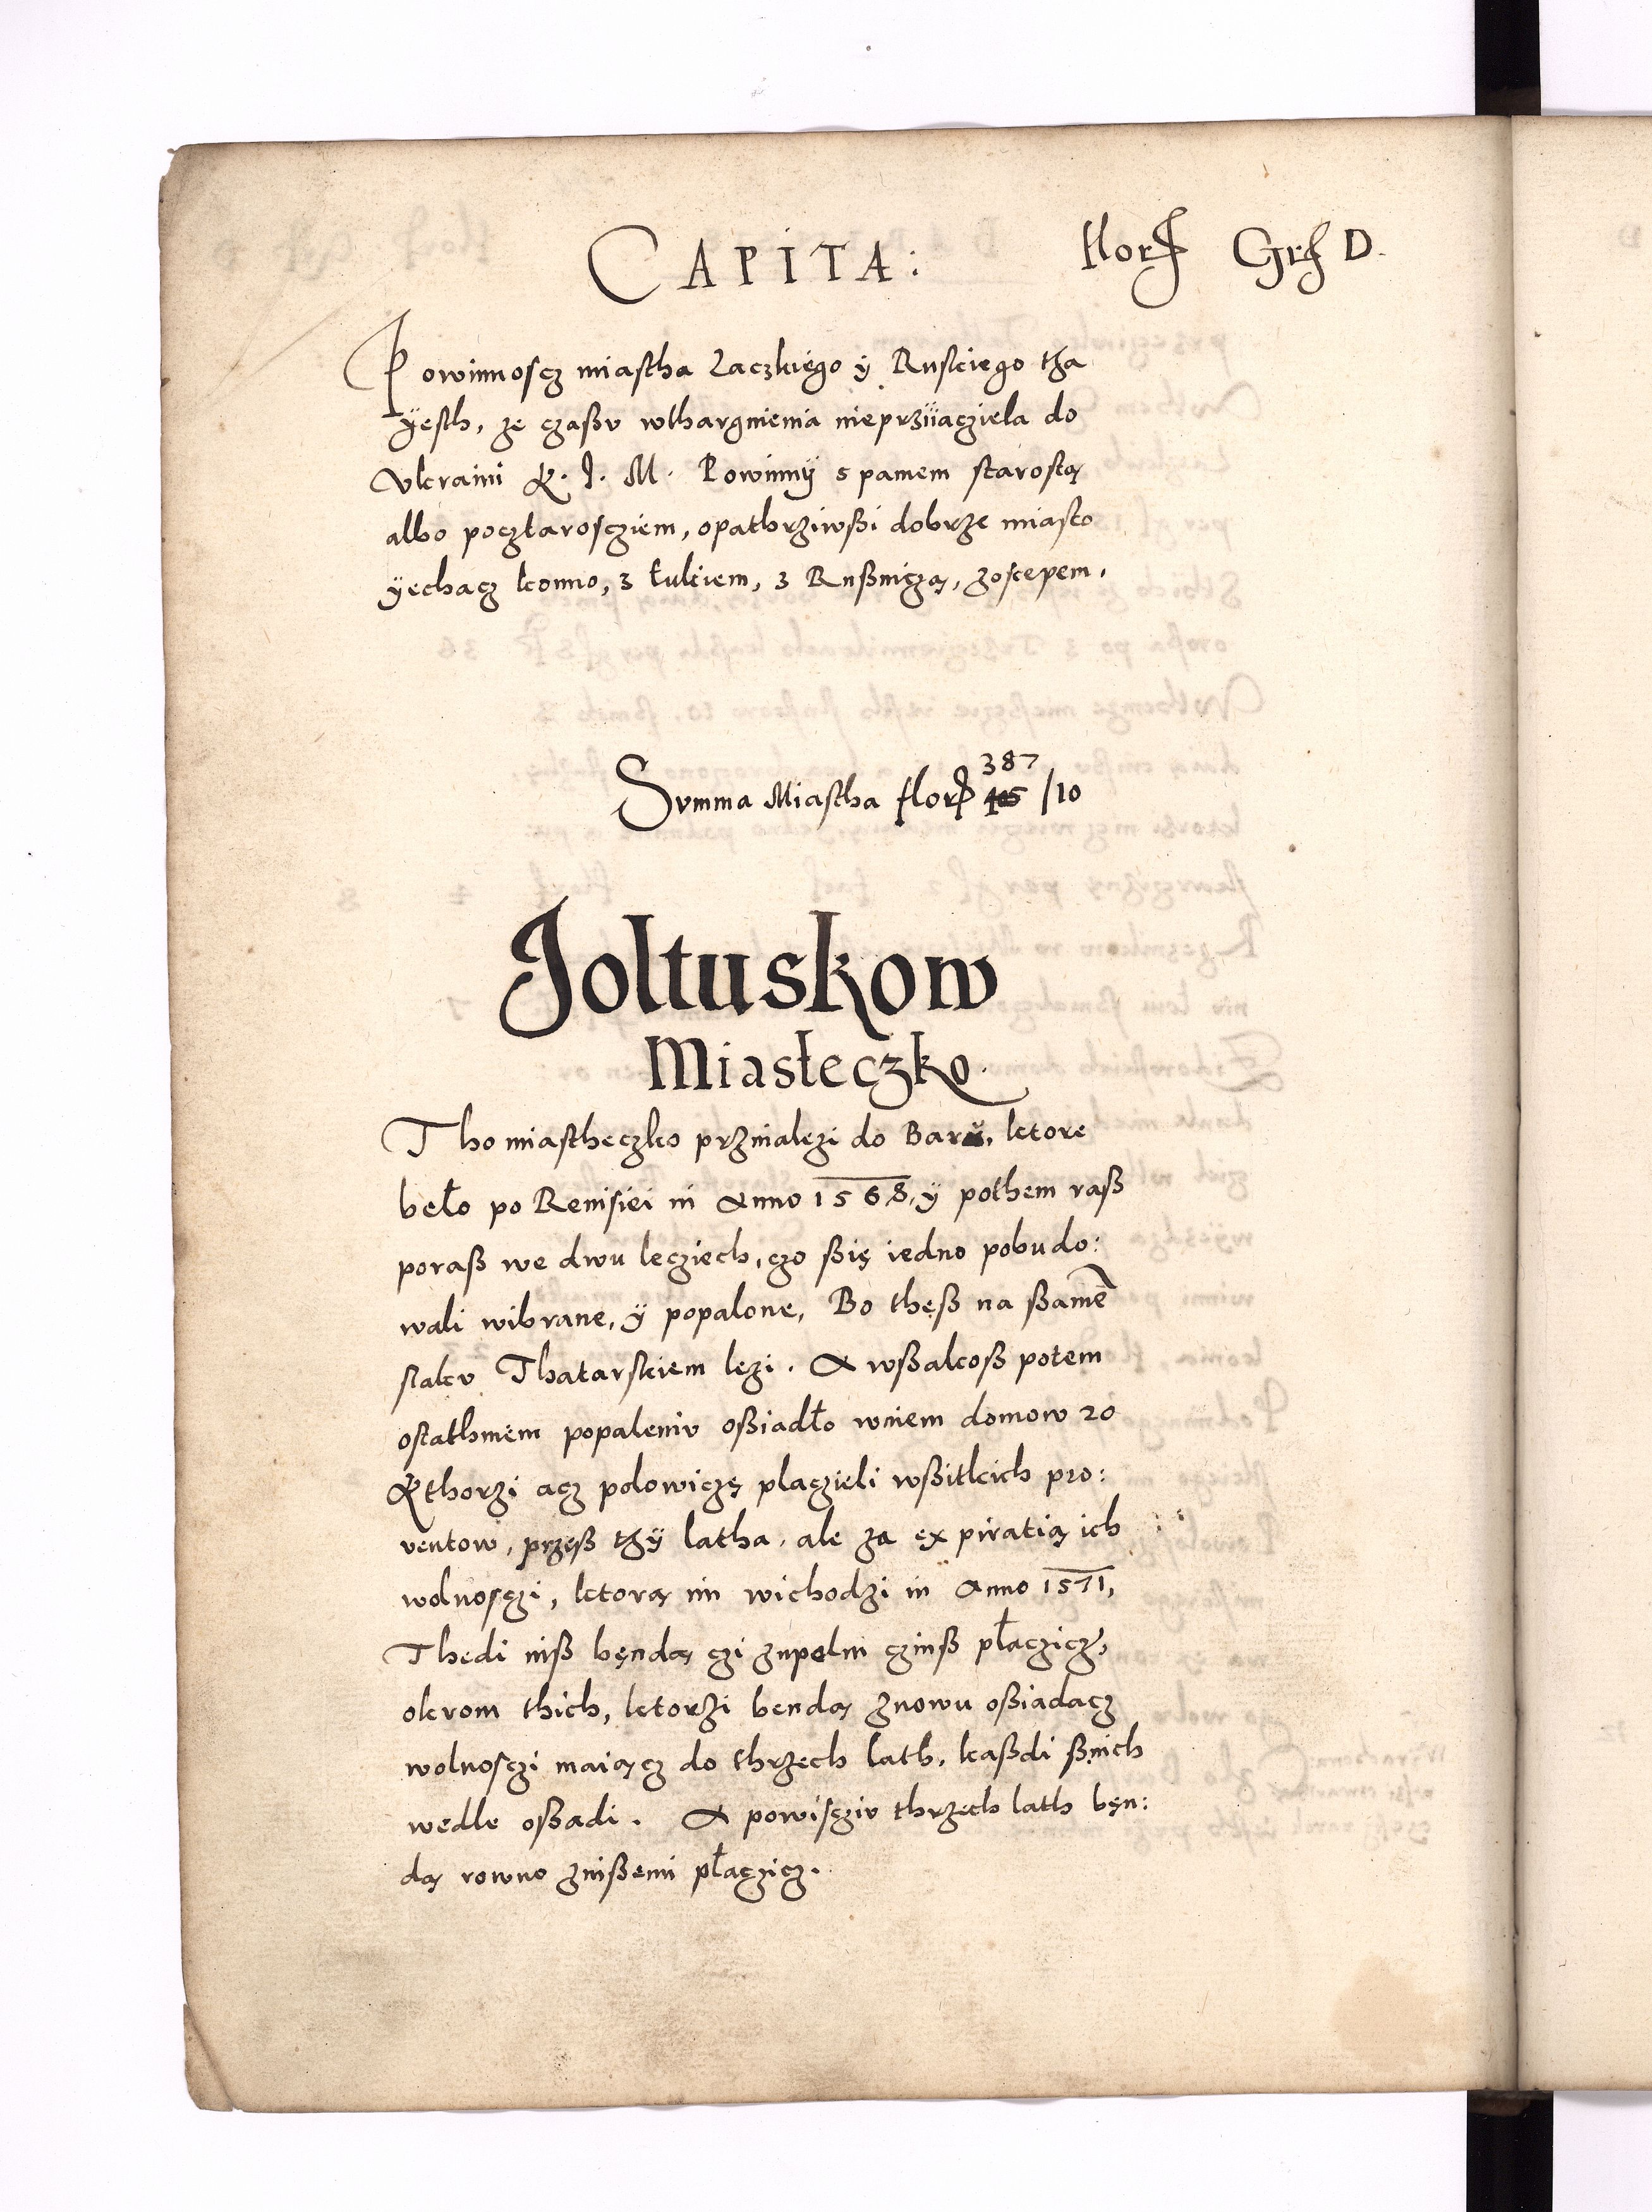 CAPITA: florſ Grſ D.
Powinnoscz miastha Laczkiego y Ruskiego tha
ÿesth, ze czaßu wthargnienia nieprzÿaciela do
Vkraini K. J. M. Powinnÿ s panem starostą
albo poczstarosciem, opathrziwßi dobrze miasto
ÿechacz konno, z łukiem, z Rußniczą, zoscepem.
387
Summa Miastha florſ /10
Joltuskow
Miasteczko.
Tho miastheczko prznalezi do Baru, ktore
beło po Revisiei in Anno 1568, ÿ pothem raß
poraß we dwu lecziech, czo ßię iedno pobudo:
wali wibrane, ÿ popalone, Bo theß na ßamē
slaku Thatarskiem lezi. A wßakoß potem
ostathniem popaleniu oßiadło wniem domow 20
Kthorzi acz polowiczę placzieli wßitkich pro:
ventow, przeß thÿ latha, ale za expiratią ich
wolnosczi, ktorą im wichodzi in Anno 1571,
Thedi niß bęndą czi zupelni czinß płaczicz,
okrom thich, ktorzi bendą znowu oßiadacz
wolnosczi maiącz do thrzech lath, kaßdi ßnich
wedle oßadi. A powiscziu thrzech lath bęn:
dą rowno znißemi płaczicz.